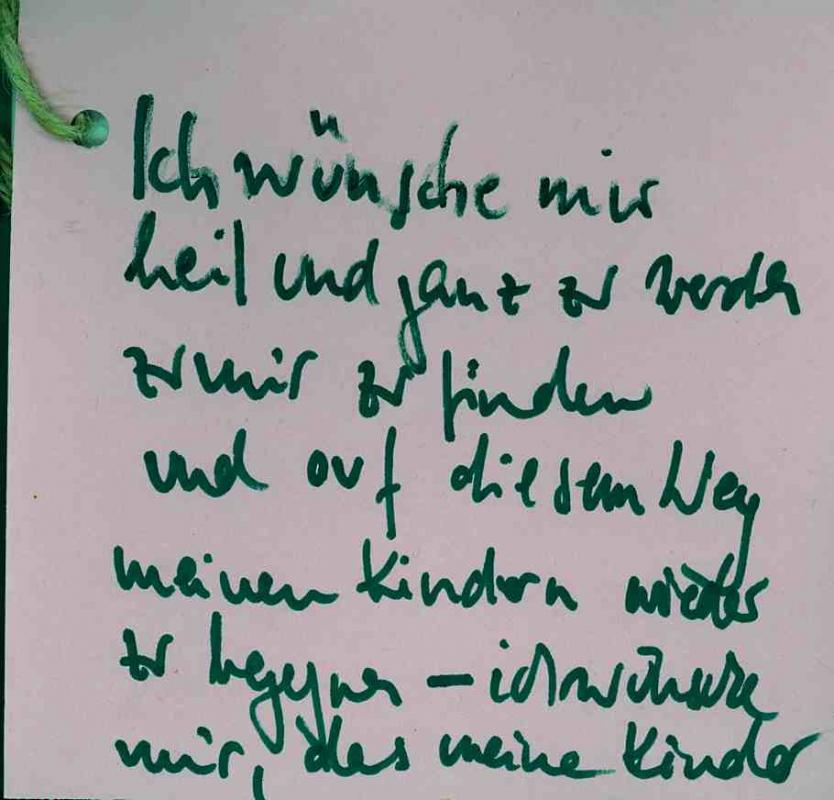 Ich wünsche mir
heil und ganz zu werden
zu mir zu finden
und auf diesem Weg
meinen Kindern wieder
zu begegnen – ich wünsche
mir, das meine Kinder